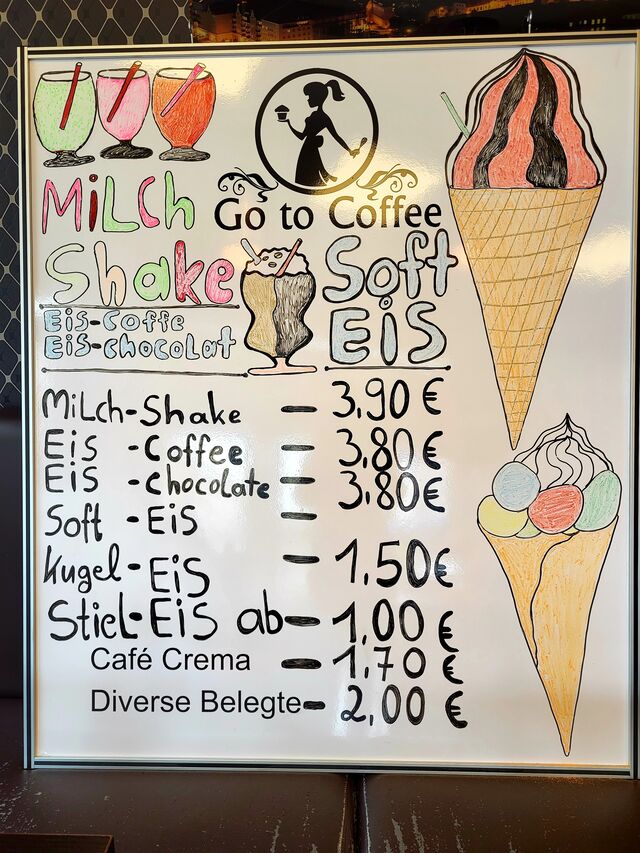 MiLCh
Shake
Eis-Coffe
Eis-chocoLat
Go to Coffee
Soft
EiS
MiLch-Shake – 3,90 €
Eis - Coffee – 3,80 €
Eis - chocolate – 3,80 €
Soft - EiS –
Kugel-EiS – 1,50 €
Stiel-EiS ab – 1,00 €
Café Crema – 1,70 €
Diverse Belegte – 2,00 €